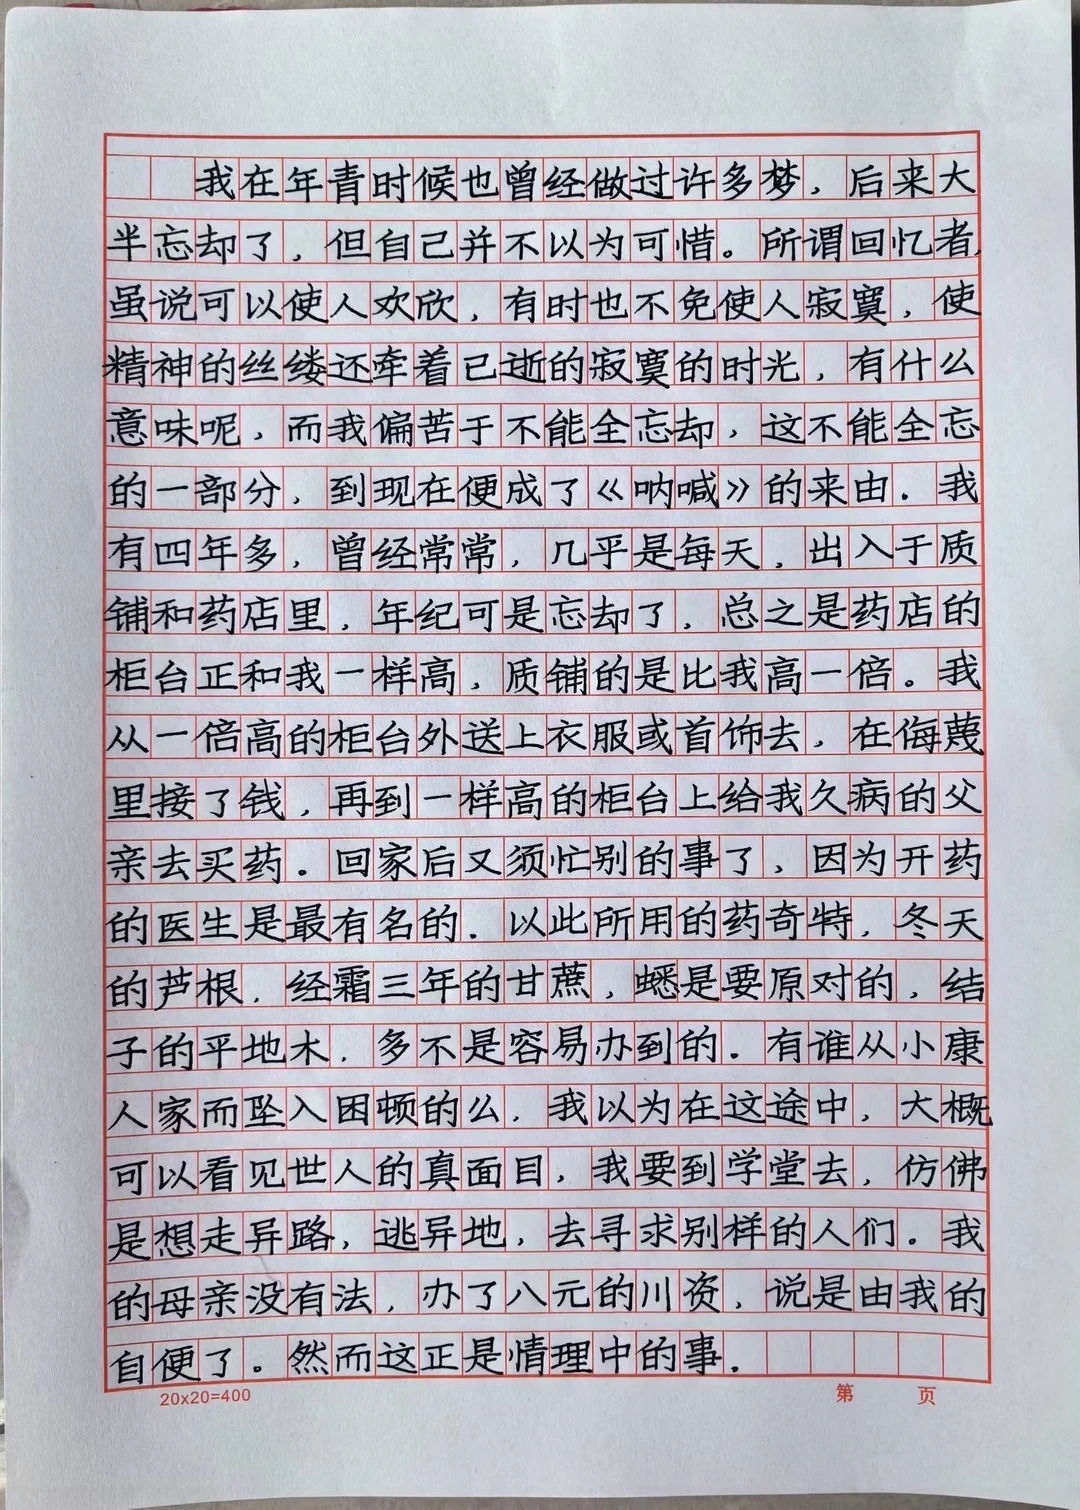 我在年青时候也曾经做过许多梦，后来大
半忘却了，但自己并不以为可惜。所谓回忆者，
虽说可以使人欢欣，有时也不免使人寂寞，使
精神的丝缕还牵着已逝的寂寞的时光，有什么
意味呢，而我偏苦于不能全忘却，这不能全忘
的一部分，到现在便成了《呐喊》的来由．我
有四年多，曾经常常，几乎是每天，出入于质
铺和药店里，年纪可是忘却了，总之是药店的
柜台正和我一样高，质铺的是比我高一倍。我
从一倍高的柜台外送上衣服或首饰去，在侮蔑
里接了钱，再到一样高的柜台上给我久病的父
亲去买药。回家后又须忙别的事了，因为开药
的医生是最有名的．以此所用的药奇特，冬天
的芦根，经霜三年的甘蔗，蟋是要原对的，结
子的平地木．多不是容易办到的。有谁从小康
人家而坠入困顿的么，我以为在这途中，大概
可以看见世人的真面目，我要到学堂去，仿佛
是想走异路，逃异地，去寻求别样的人们。我
的母亲没有法，办了八元的川资，说是由我的
自便了。然而这正是情理中的事．
20x20=400
第 页